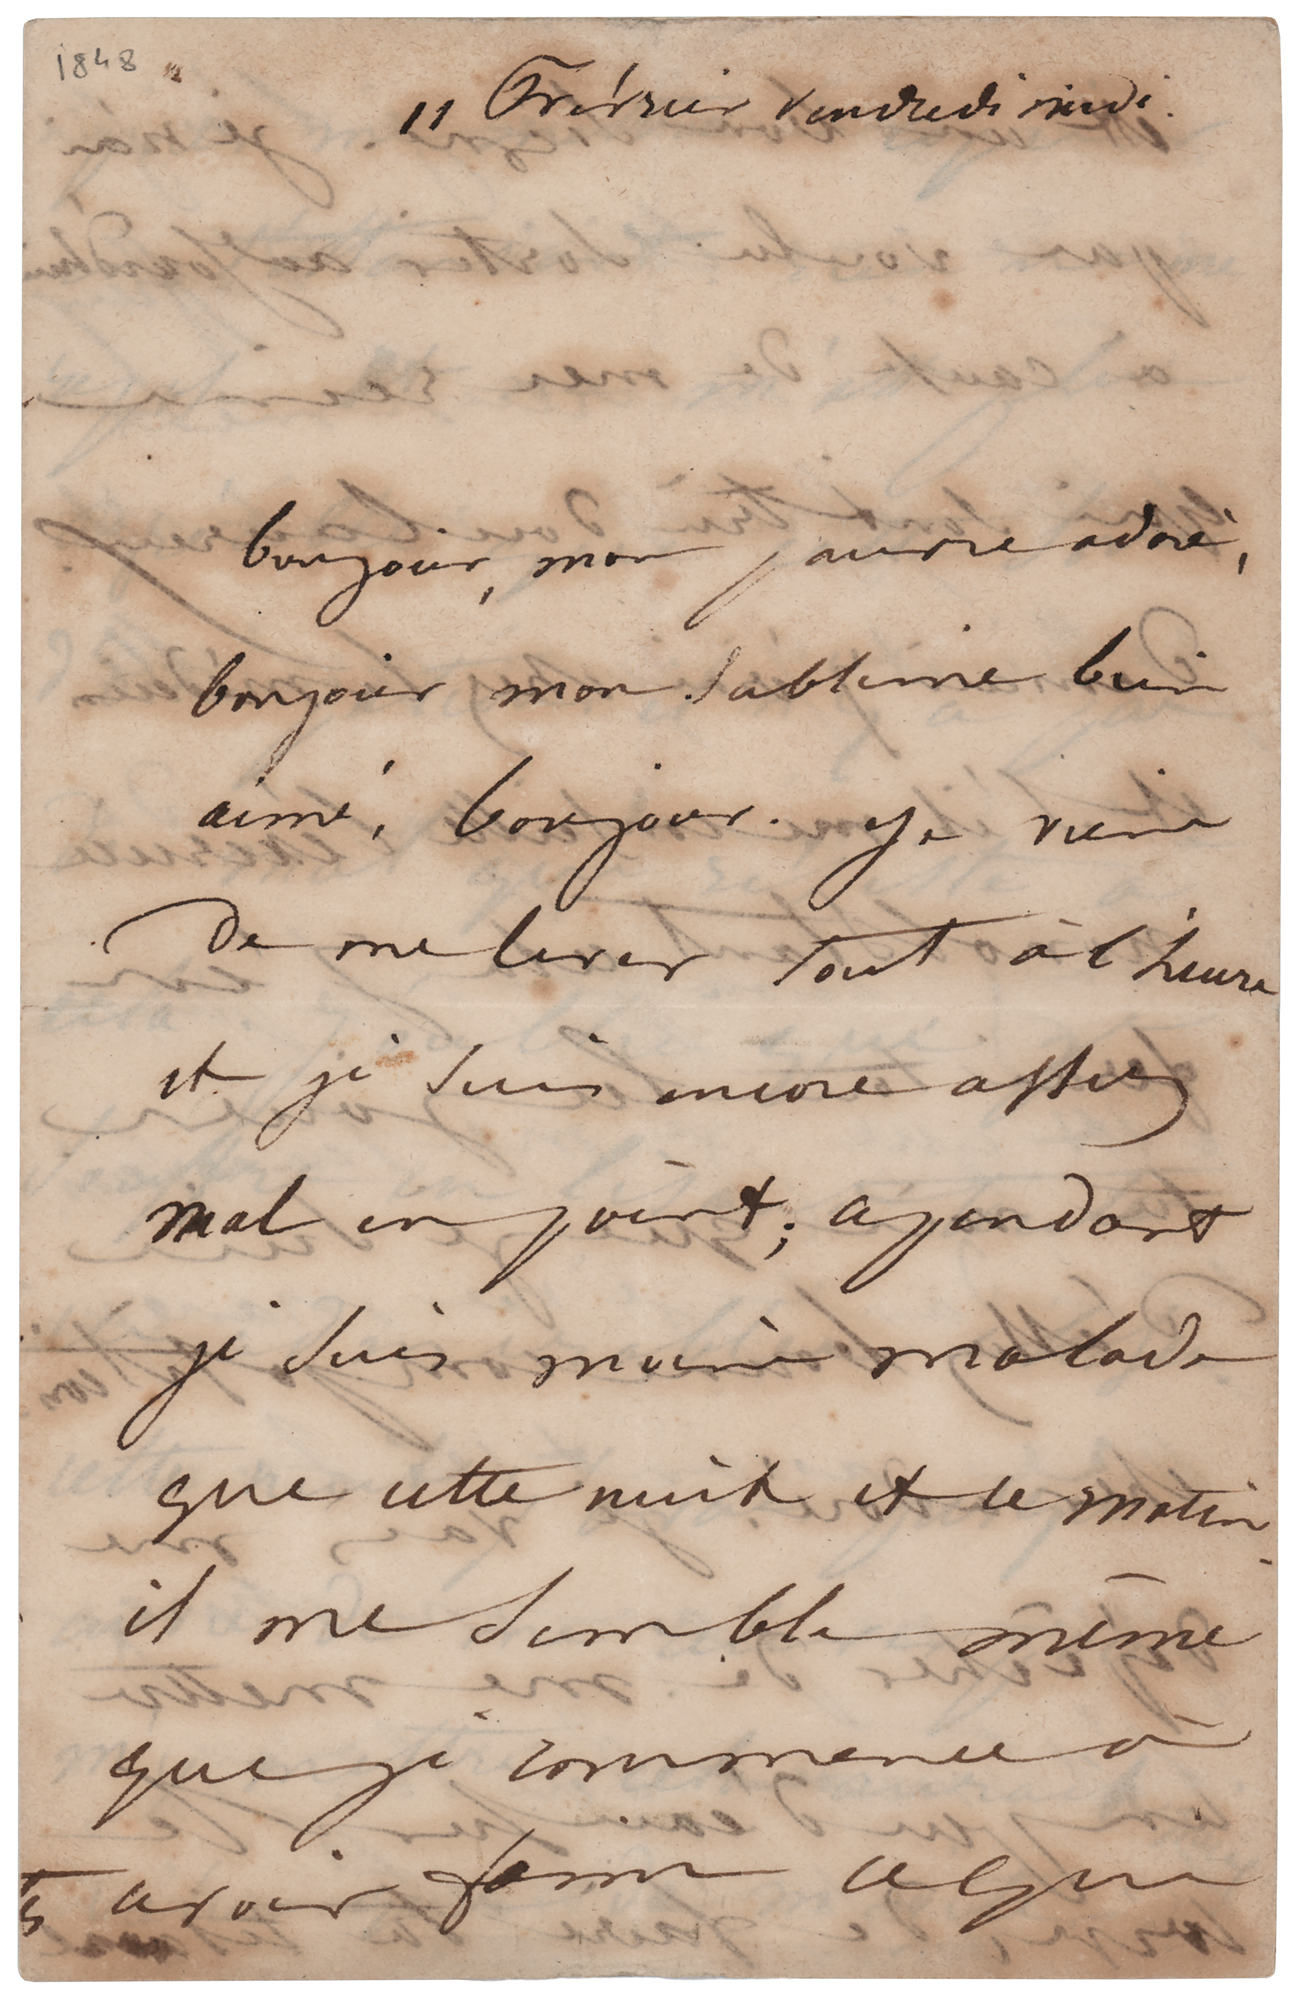 1848
11 Février vendredi midi.
bonjour, mon pauvre adoré,
bonjour mon sublime bien
aimé, bonjour. Je viens
de me lever tout à l'heure
et je suis encore assez
mal en point; cependant
je suis moins malade
que cette nuit et ce matin
il me semble même
que je commence à
avoir faim ce qui